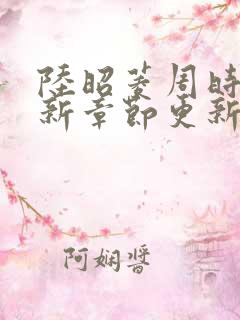 陸昭菱周時
新章節更新
阿嫻醬